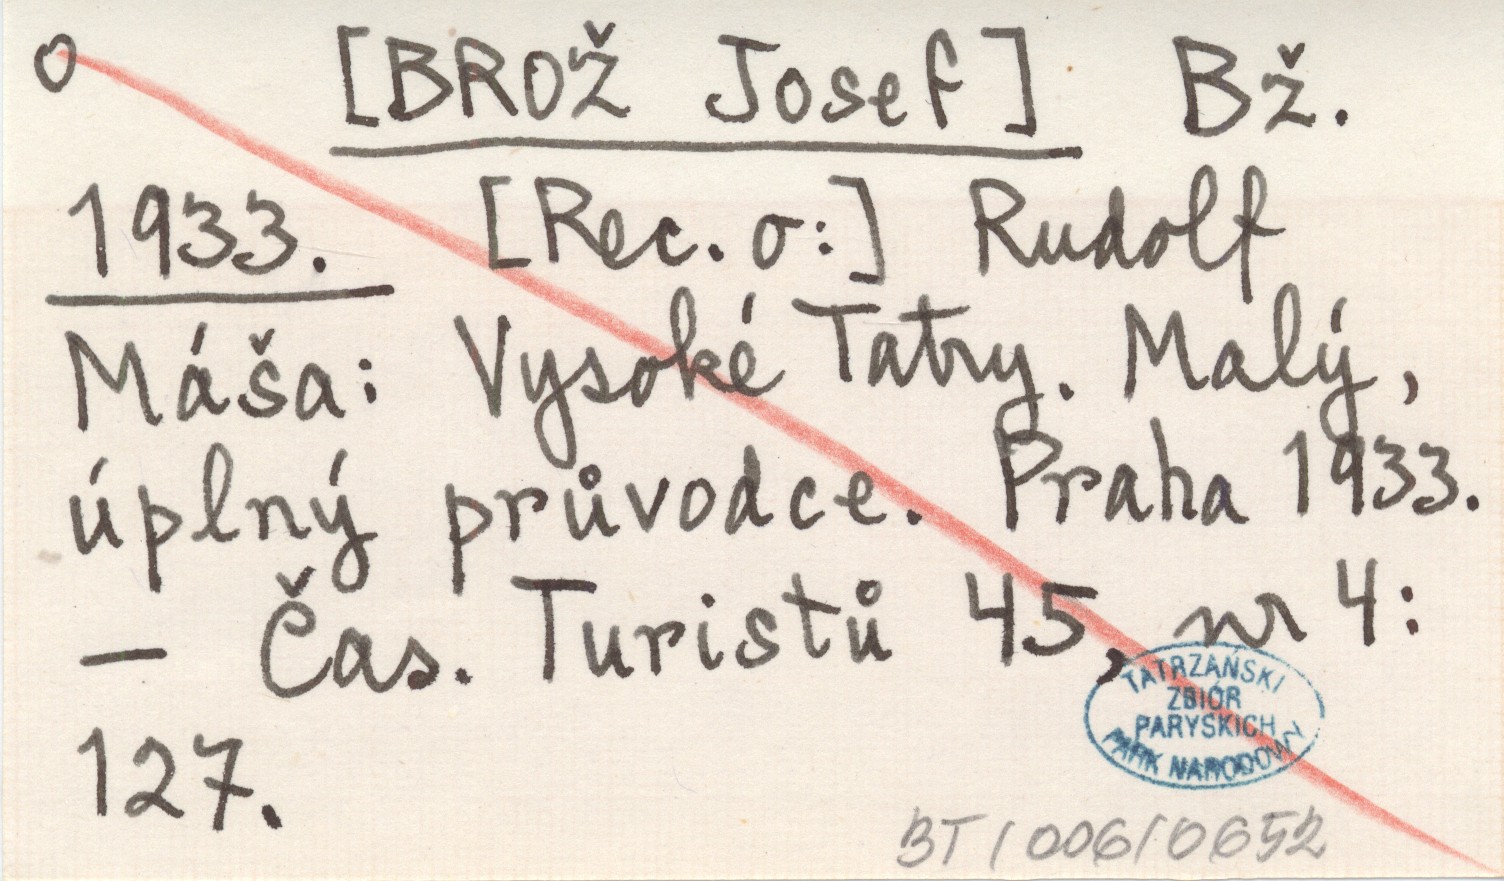 o [BROŽ Josef] Bž.
1933. [Rec. o:] Rudolf
Máša: Vysoké Tatry. Malý,
úplný průvodce. Praha 1933.
– Čas. Turistů 45, nr 4:
127.
TATRZAŃSKI
ZBIÓR
PARYSKICH
PARK NARODOWY
BT/006/0652